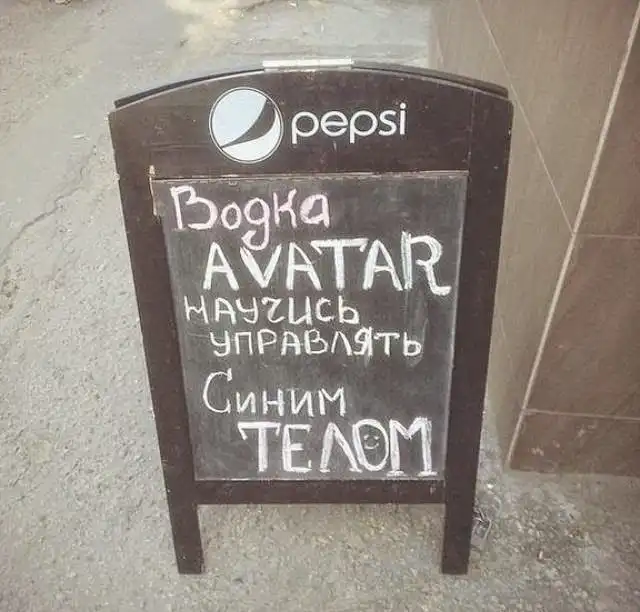 pepsi
Водка
AVATAR
научись
управлять
Синим
ТЕЛОМ